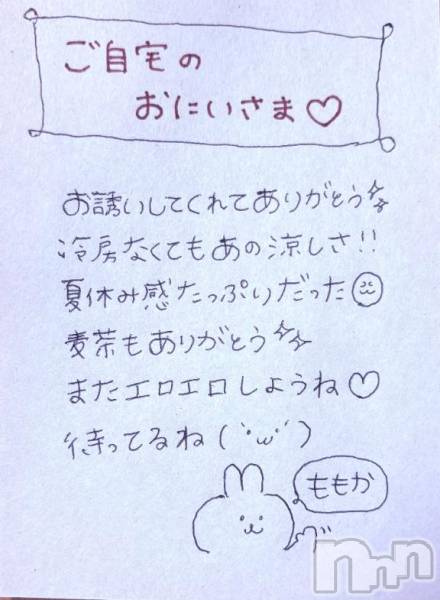 ご自宅の
おにいさま♡
お誘いしてくれてありがとう✨
冷房なくてもあの涼しさ!!
夏休み感たっぷりだった
麦茶もありがとう✨
またエロエロしようね♡
待ってるね(｀･ω･´)
ももか
nnn